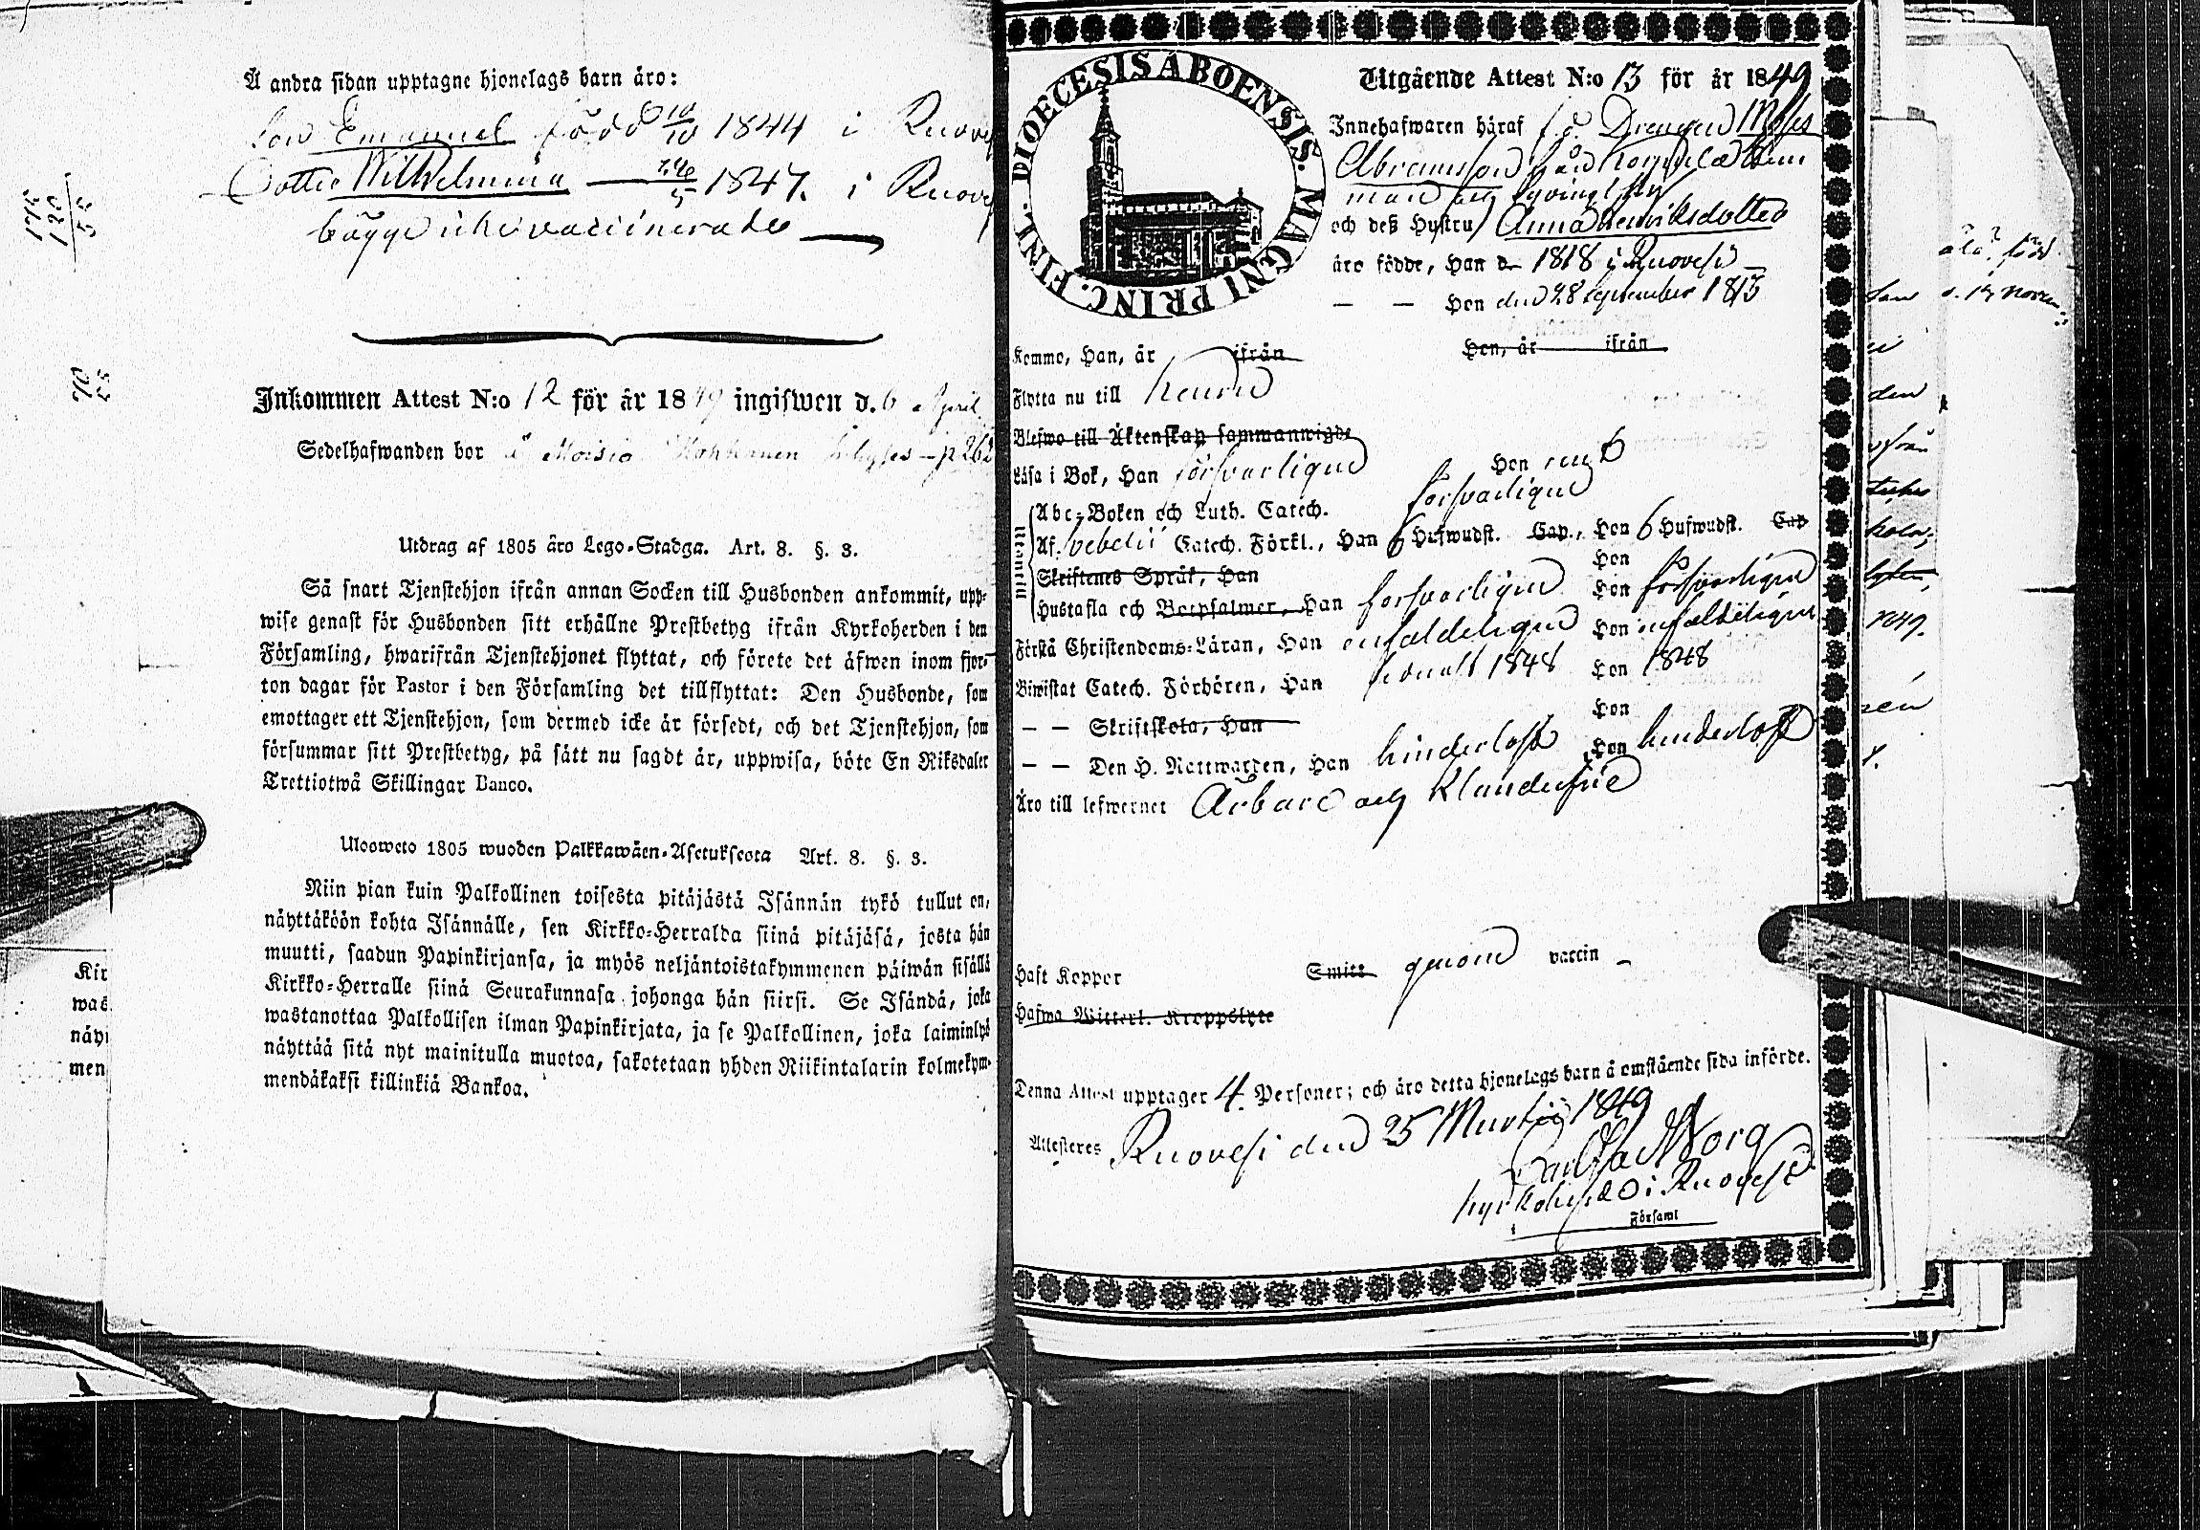 Å andra sidan upptagne hjonelags barn äro:
Son Emanuel född 10/10 1844 i Ruove
Dotter Wilhelmina — 26/5 1847. i Ruove
bägge icke vaccinerade —
Inkommen Attest N:o 12 för år 1849 ingifwen d. 6 April
Sedelhafwanden bor å p 262
Utdrag af 1805 års Lego-Stadga. Art. 8. §. 3.
Så snart Tjenstehjon ifrån annan Socken till Husbonden ankommit, upp-
wise genast för Husbonden sitt erhållne Prestbetyg ifrån Kyrkoherden i den
Församling, hwarifrån Tjenstehjonet flyttat, och förete det äfwen inom fjor-
ton dagar för Pastor i den Församling det tillflyttat: Den Husbonde, som
emottager ett Tjenstehjon, som dermed icke är försedt, och det Tjenstehjon, som
försummar sitt Prestbetyg, på sätt nu sagdt är, uppwisa, böte En Riksdaler
Trettiotwå Skillingar Banco.
Uloswето 1805 wuoden Palkkawäen-Asetuksesta Art. 8. §. 3.
Niin pian kuin Palkollinen toisesta pitäjästä Isännän tykö tullut on,
näyttäköön kohta Isännälle, sen Kirkko-Herralda siinä pitäjäsä, josta hän
muutti, saadun Papinkirjansa, ja myös neljäntoistakymmenen päiwän sisällä
Kirkko-Herralle siinä Seurakunnasa johonga hän siirsi. Se Isändä, joka
wastanottaa Palkollisen ilman Papinkirjata, ja se Palkollinen, joka laiminlyö
näyttää sitä nyt mainitulla muotoa, sakotetaan yhden Riikintalarin kolmekym-
mendäkaksi killinkiä Bankoa.
Kir
was
näy
men
DIOECESIS ABOENSIS. MAGNI PRINC. FINL.
Utgående Attest N:o 13 för år 1849
Innehafwaren häraf f.d. Drengen Moses
Abramsson från
man och
och deß Hustru Anna Henriksdotter
äro födde, Han d. 1818 i Ruovesi
— — Hon den 28 september 1813
Komme, Han, år ifrån Hon, år ifrån
Flytta nu till Keuru
Blefwo till Äktenskap sammanwigde
Läsa i Bok, Han försvarligen Hon rent
Utantill
Abc-Boken och Luth. Catech. försvarligen
Af Svebelii Catech. Förkl., Han 6 Hufwudst. Cap., Hon 6 Hufwudst. Cap
Skriftenes Språk, Han Hon
Hustafla och Botpsalmer, Han försvarligen Hon försvarligen
Förstå Christendoms-Läran, Han enfaldeligen Hon enfaldeligen
Biwistat Catech. Förhören, Han senast 1848 Hon 1848
— — Skriftskola, Han Hon
— — Den H. Nattwarden, Han hinderlöst Hon hinderlöst
Äro till lefwernet Ärbare och Klanderfrie
Haft Koppor Smitt genom vaccin —
Hafwa Witterl. Kroppslyte
Denna Attest upptager 4 Personer; och äro detta hjonelags barn å omstående sida införde.
Attesteres Ruovesi den 25 Martii 1849
Carl Norg
Kyrkoherde i Ruovesi
Församl
den
1849.